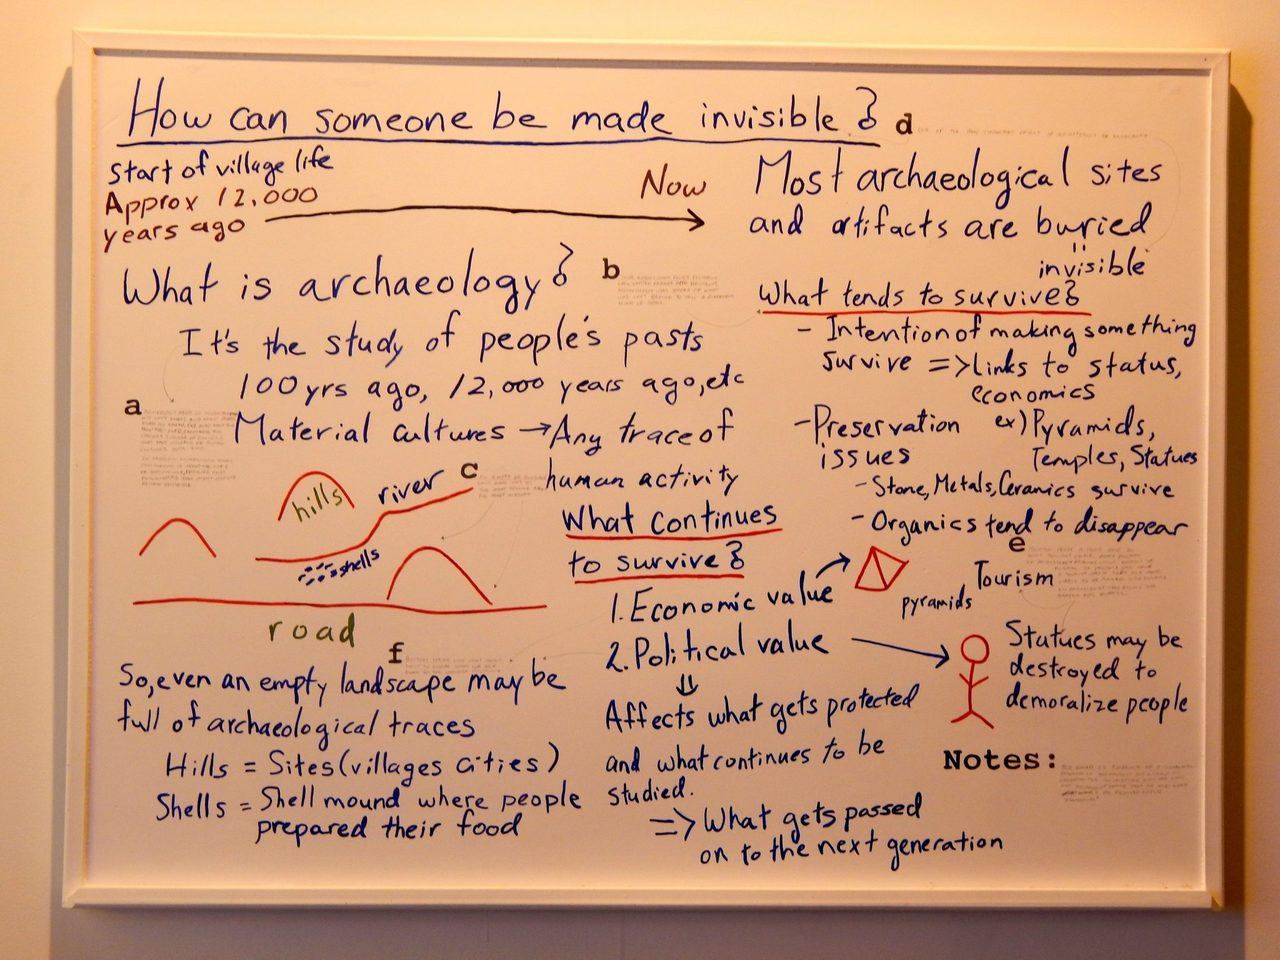 How can someone be made invisible?
Start of village life
Approx 12,000
years ago
Now
What is archaeology?
It's the study of people's pasts
100 yrs ago, 12,000 years ago, etc
Material cultures → Any trace of
human activity
a
b
c
hills
river
shells
road
f
So, even an empty landscape may be
full of archaeological traces
Hills = Sites (villages cities)
Shells = Shell mound where people
prepared their food
What continues
to survive?
1. Economic value
2. Political value
⇓
Affects what gets protected
and what continues to be
studied.
=> What gets passed
on to the next generation
d
Most archaeological sites
and artifacts are buried
invisible
What tends to survive?
- Intention of making something
survive => links to status,
economics
- Preservation ex) Pyramids,
issues Temples, Statues
- Stone, Metals, Ceramics survive
- Organics tend to disappear
e
pyramids
Tourism
Statues may be
destroyed to
demoralize people
Notes: